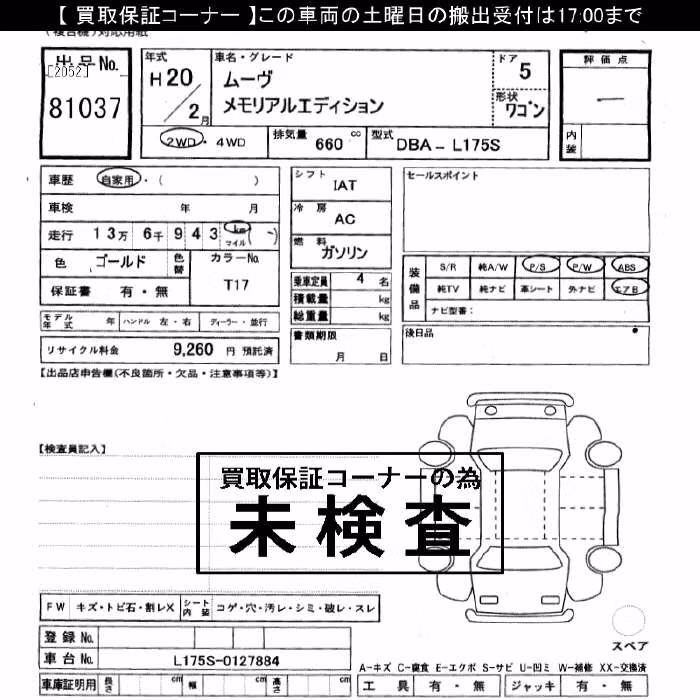 【 買取保証コーナー 】この車両の土曜日の搬出受付は17:00まで
(複合機)対応用紙
出品No.
[2052]
81037
年式
H20
/2月
車名・グレード
ムーヴ
メモリアルエディション
ドア
5
形状
ワゴン
評価点
―
内装
2WD・4WD
排気量 660 cc
型式 DBA-L175S
車歴 自家用・( )
車検 年 月
走行 13万 6千 943 km マイル (-)
色 ゴールド 色替
カラーNo. T17
保証書 有・無
シフト IAT
冷房 AC
燃料 ガソリン
乗車定員 4 名
積載量 kg
総重量 kg
書類期限
月 日
セールスポイント
装備品
S/R 純A/W P/S P/W ABS
純TV 純ナビ 革シート 外ナビ エアB
ナビ型番:
後日品
モデル年式 年 ハンドル 左・右 ディーラー・並行
リサイクル料金 9,260 円 預託済
【出品店申告欄(不良箇所・欠品・注意事項等)】
【検査員記入】
買取保証コーナーの為
未検査
FW キズ・トビ石・割レX シート内装 コゲ・穴・汚レ・シミ・破レ・スレ
登録No.
車台No. L175S-0127884
車庫証明用 長さ cm 幅 cm 高さ cm
スペア
A-キズ C-腐食 E-エクボ S-サビ U-凹ミ W-補修 XX-交換済
工具 有・無 ジャッキ 有・無